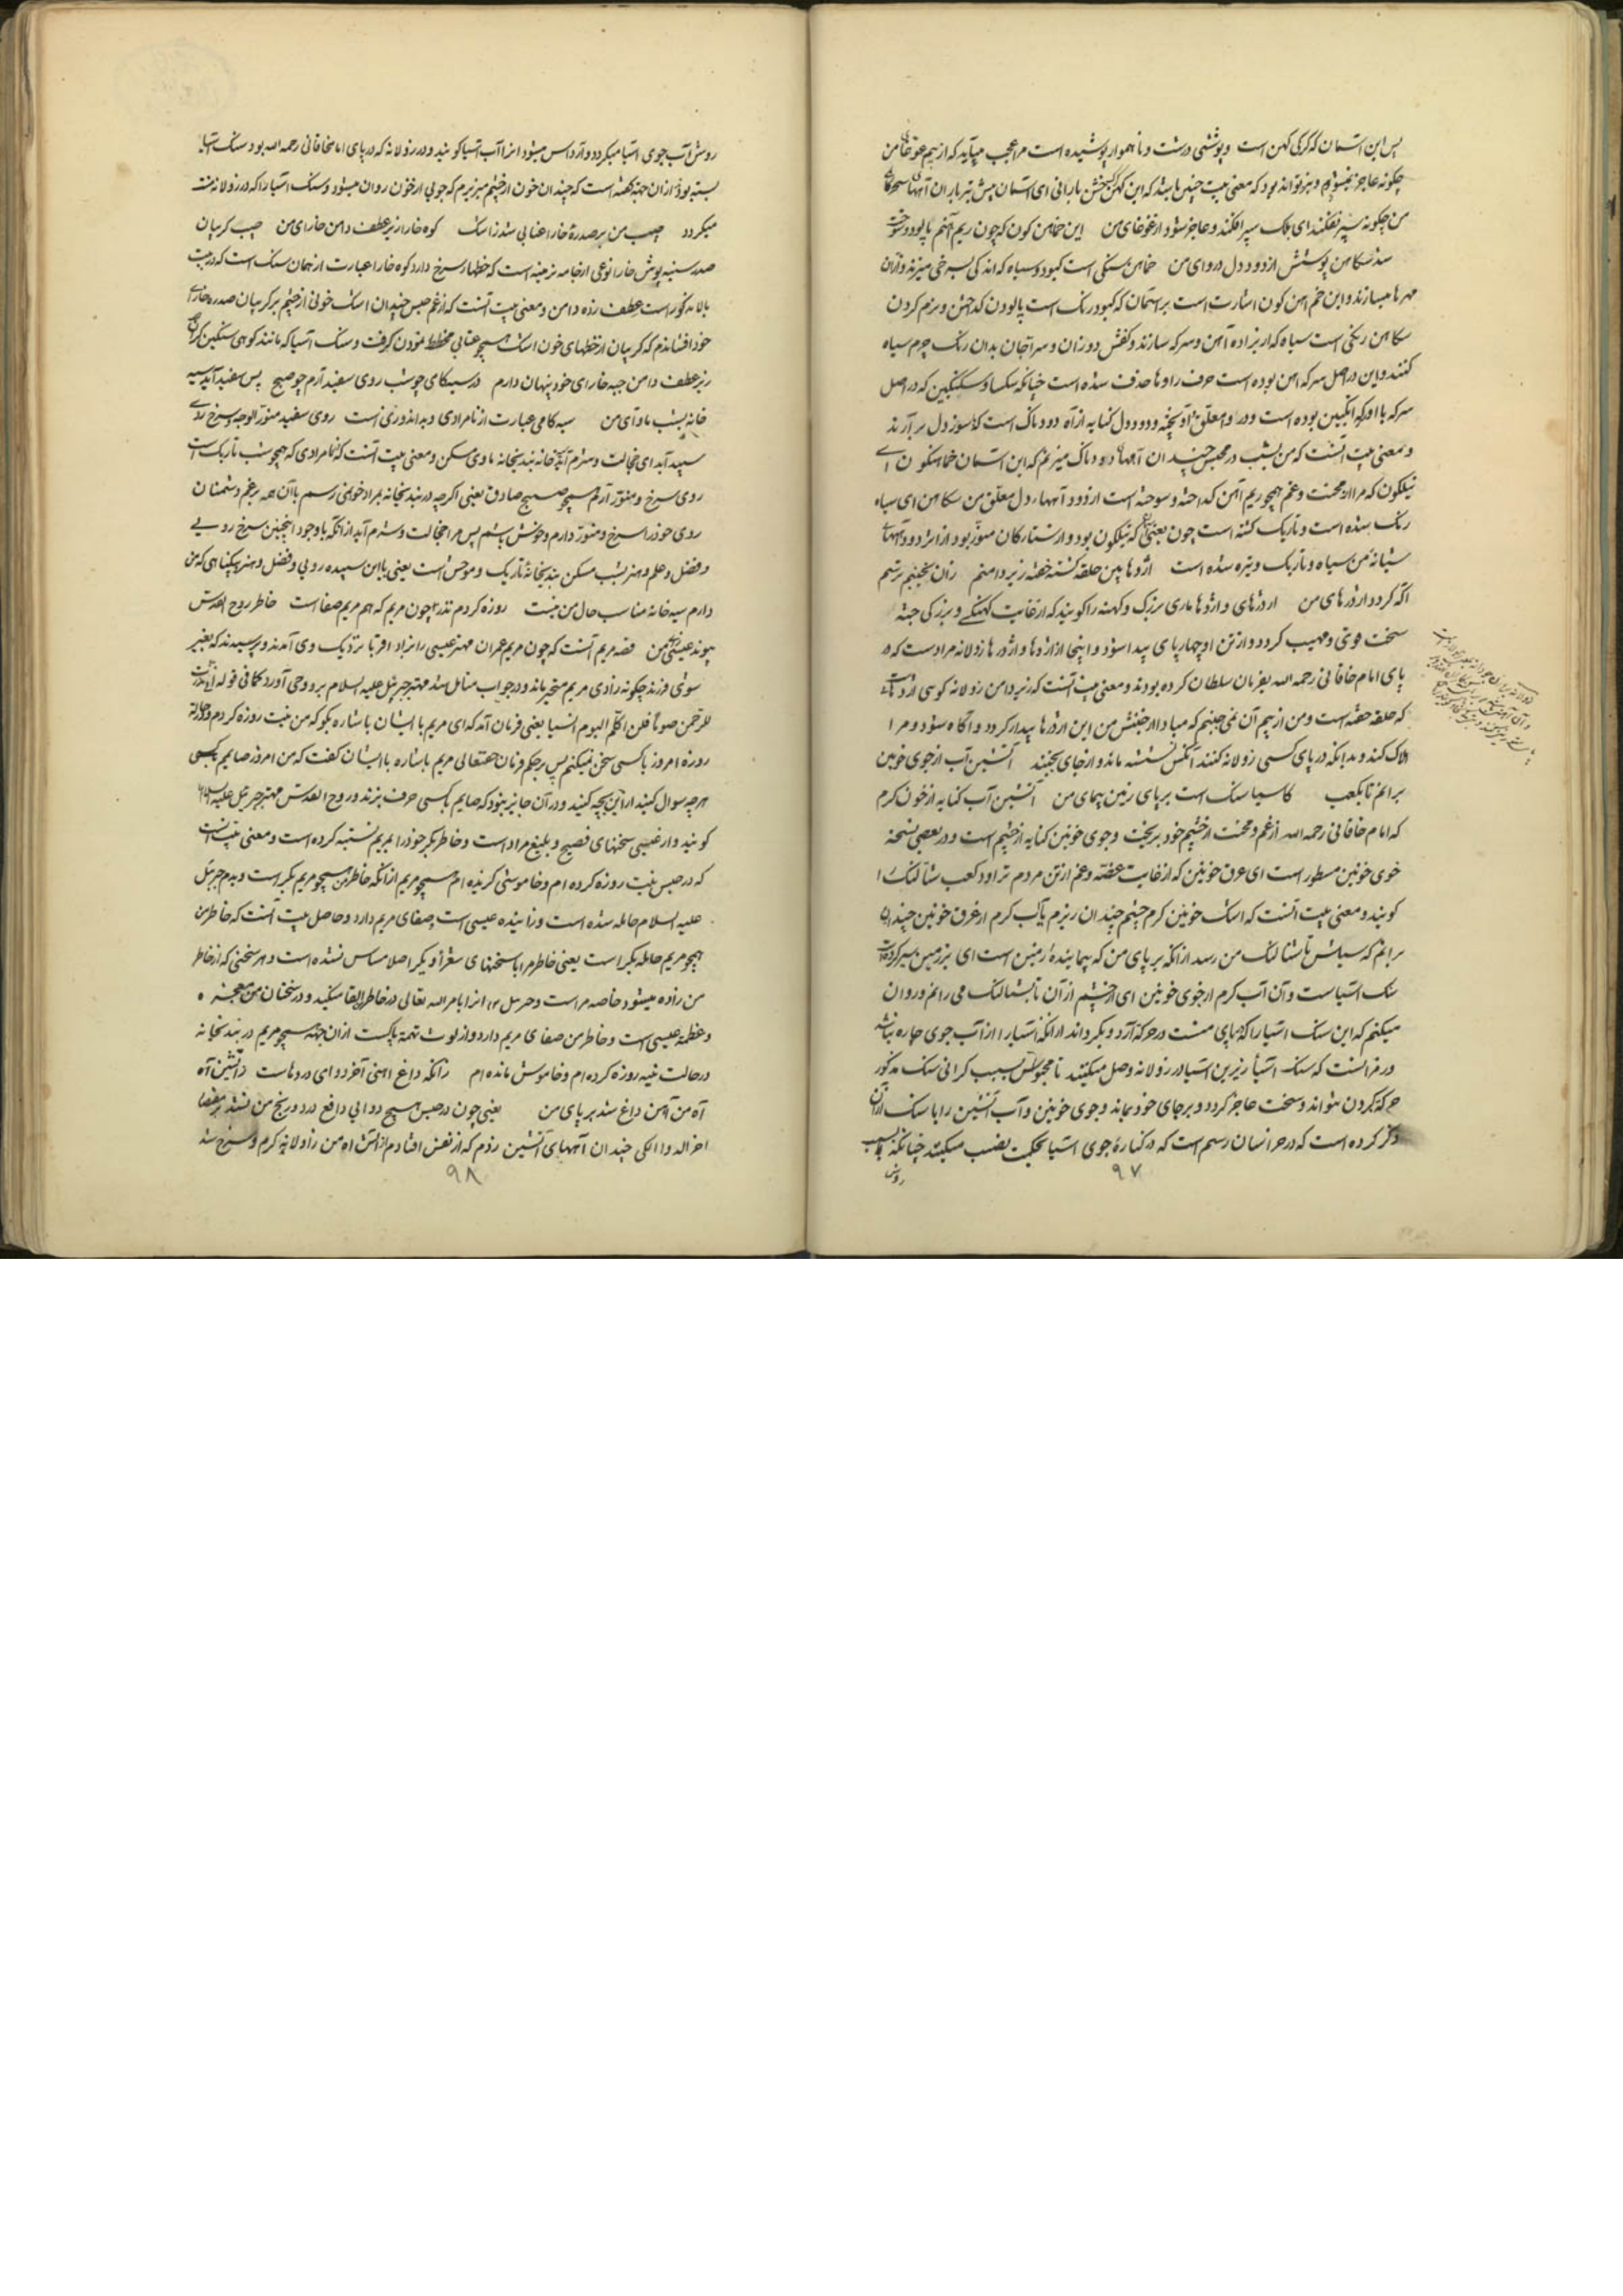 پس این آسمان که کرکی کهن است و پوششی درشت و ناهموار پوشیده است مرا عجب میآید که از بیم غوغا من
چکونه عاجز نمیشوم و نیز تواند بود که معنی بیت چنین باشد که این کهن کرکش بارانی ای آسمان پیش تیر باران آههای سحرکاه
من چکونه سپر نفکند ای فلک سپر افکند و عاجز شود از غوغای من این خماهن کون که چون ریم آهنم پالود و سوخت
شد سکاهن پوشش از دود دل دروای من خماهن سنکی است کبود و سیاه که اندکی بسرخی میزند و ازان
مهرها میسازند و این خماهن کون اشارت است بر آسمان که کبود رنک است پالودن کداختن و نرم کردن
سکاهن رنکی است سیاه که از براده آهن و سرکه سازند و کفش دوزان و سراجان بدان رنک چرم سیاه
کنند و این در اصل سرکه آهن بوده است حرف را و ها حذف شده است چنانکه سکبا و سکنکبین که در اصل
سرکه با و سرکه انکبین بوده است و دروا معلق و آویخته و دود دل کنایه از آه دودناک است که از سوز دل بر آرند
و معنی بیت آنست که من بشب در محبس چندان آههای دودناک میزنم که این آسمان خماهن کون ای
نیلکون که مرا از محنت و غم همچو ریم آهن کداخته و سوخته است از دود آههاء دل معلق من سکاهن ای سیاه
رنک شده است و تاریک کشته است چون یعنی که نیلکون بود و از ستارکان منور بود از اثر دود آههای
شبانه من سیاه و تاریک و تیره شده است اژدها بین حلقه کشته خفته زیر دامنم زان نجنبم ترسم
آکه کردد اژدرهای من اژدرهای و اژدها ماری بزرک و کهنه را کویند که از غایت کهنکی و بزرکی جثه
سخت قوی و مهیب کردد و از تن او چهار پای پیدا شود و اینجا از اژدها و اژدرها زولانه مراد است که در
پای امام خاقانی رحمه الله بفرمان سلطان کرده بودند و معنی بیت آنست که زیر دامن زولانه کوئی اژدهاست
که حلقه خفته است و من از بیم آن نمی جنبم که مبادا از جنبش من این اژدرها بیدار کردد و آکاه شود و مرا
هلاک کند و بدانکه در پای کسی زولانه کنند آنکس نشسته ماند و از جای نجنبد آتشین آب از جوی خونین
برانم تا بکعب کاسیا سنک است بر پای زمین پیمای من آتشین آب کنایه از خون کرم
که امام خاقانی رحمه الله از غم و محنت از چشم خود بریخت و جوی خونین کنایه از چشم است و در بعضی نسخه
خوی خونین مسطور است ای عرق خونین که از غایت غصه و غم از تن مردم تراود کعب شتالنک را
کویند و معنی بیت آنست که اشک خونین کرم چشم چندان ریزم یا آب کرم از عرق خونین چندان
برانم که سیلش تا شتالنک من رسد از آنکه بر پای من که پیماینده زمین است ای بر زمین سیر کردی
سنک آسیاست و آن آب کرم از جوی خونین ای از چشم از آن تا بشتالنک می رانم و روان
میکنم که این سنک آسیا را که بپای منست در حرکة آرد و بکرداند از آنکه آسیا را از آب جوی چاره نباشد
و رمز آنست که سنک آسیا زیرین آسیا در زولانه وصل میکنند تا محبوس بسبب کرانی سنک مذکور
حرکة کردن نتواند و سخت عاجز کردد و بر جای خود بماند و جوی خونین و آب آتشین را با سنک از آن
ذکر کرده است که در خراسان رسم است که در کنارهٔ جوی آسیا بحکمت نصب میکنند چنانکه بسبب
روش
۹۷
روش آب جوی آسیا میکردد و آرد آس میشود انرا آب آسیا کویند و در زولانه که در پای امام خاقانی رحمه الله بود سنک آسیا
بسته بود از ان جهة کفته است که چندان خون از چشم میریزم که جویی از خون روان میشود و سنک آسیا را که در زولانه منست
میکردد جیب من بر صدرهٔ خارا عنابی شد ز اشک کوه خارا زیر عطف دامن خارای من جیب کریبان
صدر سینه پوش خارا نوعی از جامه نرمینه است که خطها سرخ دارد کوه خارا عبارت از همان سنک است که در بیت
بالا مذکور است عطف زه دامن و معنی بیت آنست که از غم حبس چندان اشک خونی از چشم بر کریبان صدره خارای
خود افشاندم که کریبان از خطهای خون اشک همچو عنابی مخطط نمودن کرفت و سنک آسیا که مانند کوهی سنکین کران
زیر عطف دامن جبه خارای خود پنهان دارم در سیه کامی چو شب روی سفید آرم چو صبح پس سفید آید سیه
خانه بشب ماوای من سیه کامی عبارت از نامرادی و بد اندوزیست روی سفید منور الوجه و سرخ روی
سپید آید ای خجالت و شرم آید خانه بندیخانه ماوی مسکن و معنی بیت آنست که نامرادی که همچو شب تاریک است
روی سرخ و منور آرم همچو صبح صادق یعنی اکرچه در بندیخانه بمراد خود نمی رسم با آن همه برغم دشمنان
روی خود را سرخ و منور دارم و خوش باشم پس مرا خجالت و شرم آید از آنکه با وجود اینچنین سرخ رویی
و فضل و علم و هنر بشب مسکن بندیخانهٔ تاریک و موحش است یعنی با این سپیده رویی و فضل و هنر و بیکناهی که من
دارم سیه خانه مناسب حال من نیست روزه کردم نذر چون مریم که هم مریم صفا است خاطر روح القدس
پیوند عیسی زای من قصه مریم آنست که چون مریم عمران مهتر عیسی را بزاد اقربا نزدیک وی آمدند و پرسیدند که بغیر
شوی فرزند چکونه زادی مریم متحیر ماند و در جواب متامل شد مهتر جبرئیل علیه السلام برو وحی آورد کما فی قوله انی نذرت
للرحمن صوما فلن اکلم الیوم انسیا یعنی فرمان آمد که ای مریم با ایشان باشاره بکو که من نیت روزه کردم و در حالت
روزه امروز با کسی سخن نمیکنم پس بر حکم فرمان حقتعالی مریم باشاره با ایشان کفت که من امروز صایم با کسی
هرچه سوال کنید از این بچه کنید و در آن جایز نبود که صایم با کسی حرف بزند و روح القدس مهتر جبرئیل علیه السلام را
کویند و از عیسی سخنهای فصیح و بلیغ مراد است و خاطر بکر خود را بمریم تشبیه کرده است و معنی بیت آنست
که در حبس نیت روزه کرده ام و خاموشی کزیده ام همچو مریم از آنکه خاطر من همچو مریم بکر است و بدم جبرئیل
علیه السلام حامله شده است و زاینده عیسی است و صفای مریم دارد و حاصل بیت آنست که خاطر من
همچو مریم حامله بکر است یعنی خاطر مرا با سخنهای شعرا دیکر اصلا مساس نشده است و هر سخنی که از خاطر
من زاده میشود خاصه مراست و جبرئیل آنرا بامر الله تعالی در خاطر القا میکند و در سخنان من معجزه
و عظمة عیسی است و خاطر من صفای مریم دارد و از لوث تهمة پاکست از ان جهة همچو مریم در بندیخانه
در حالت نیة روزه کرده ام و خاموش مانده ام زانکه داغ آهنی آخر دوای دردهاست زآتشین آه
آه من آهن داغ شد بر پای من یعنی چون در حبس هیچ دوایی دافع درد و رنج من نشد بر مقتضاء
آخر الدوا الکی چندان آههای آتشین زدم که از تفش آتش آه من زولانه کرم و سرخ شد
۹۸